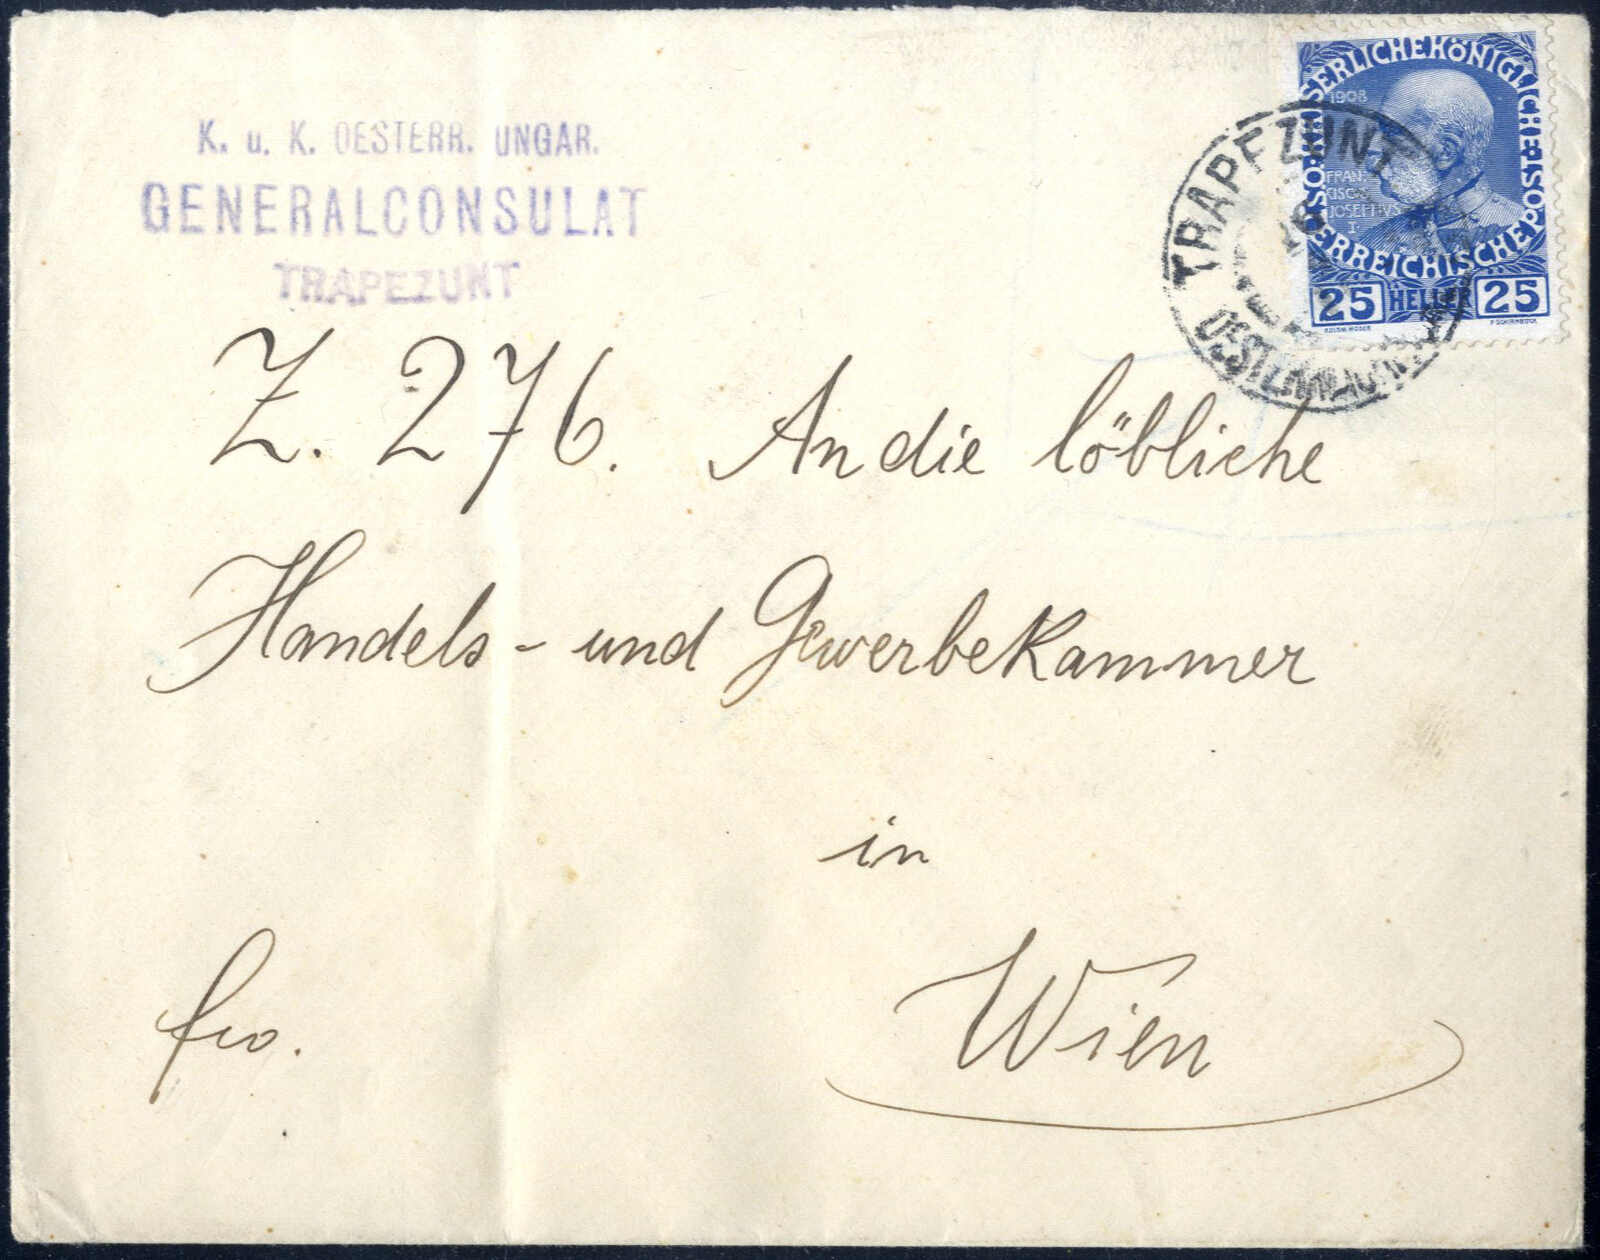 K. u. K. OESTERR. UNGAR.
GENERALCONSULAT
TRAPEZUNT
KAISERLICHE KÖNIGLICHE ÖSTERREICHISCHE POST
1908
FRAN
CISC
JOSEPHVS
I
25 HELLER 25
KOLOM. MOSER F. SCHIRNBÖCK
TRAPEZUNT
Z. 276. An die löbliche
Handels- und Gewerbekammer
in
fro. Wien